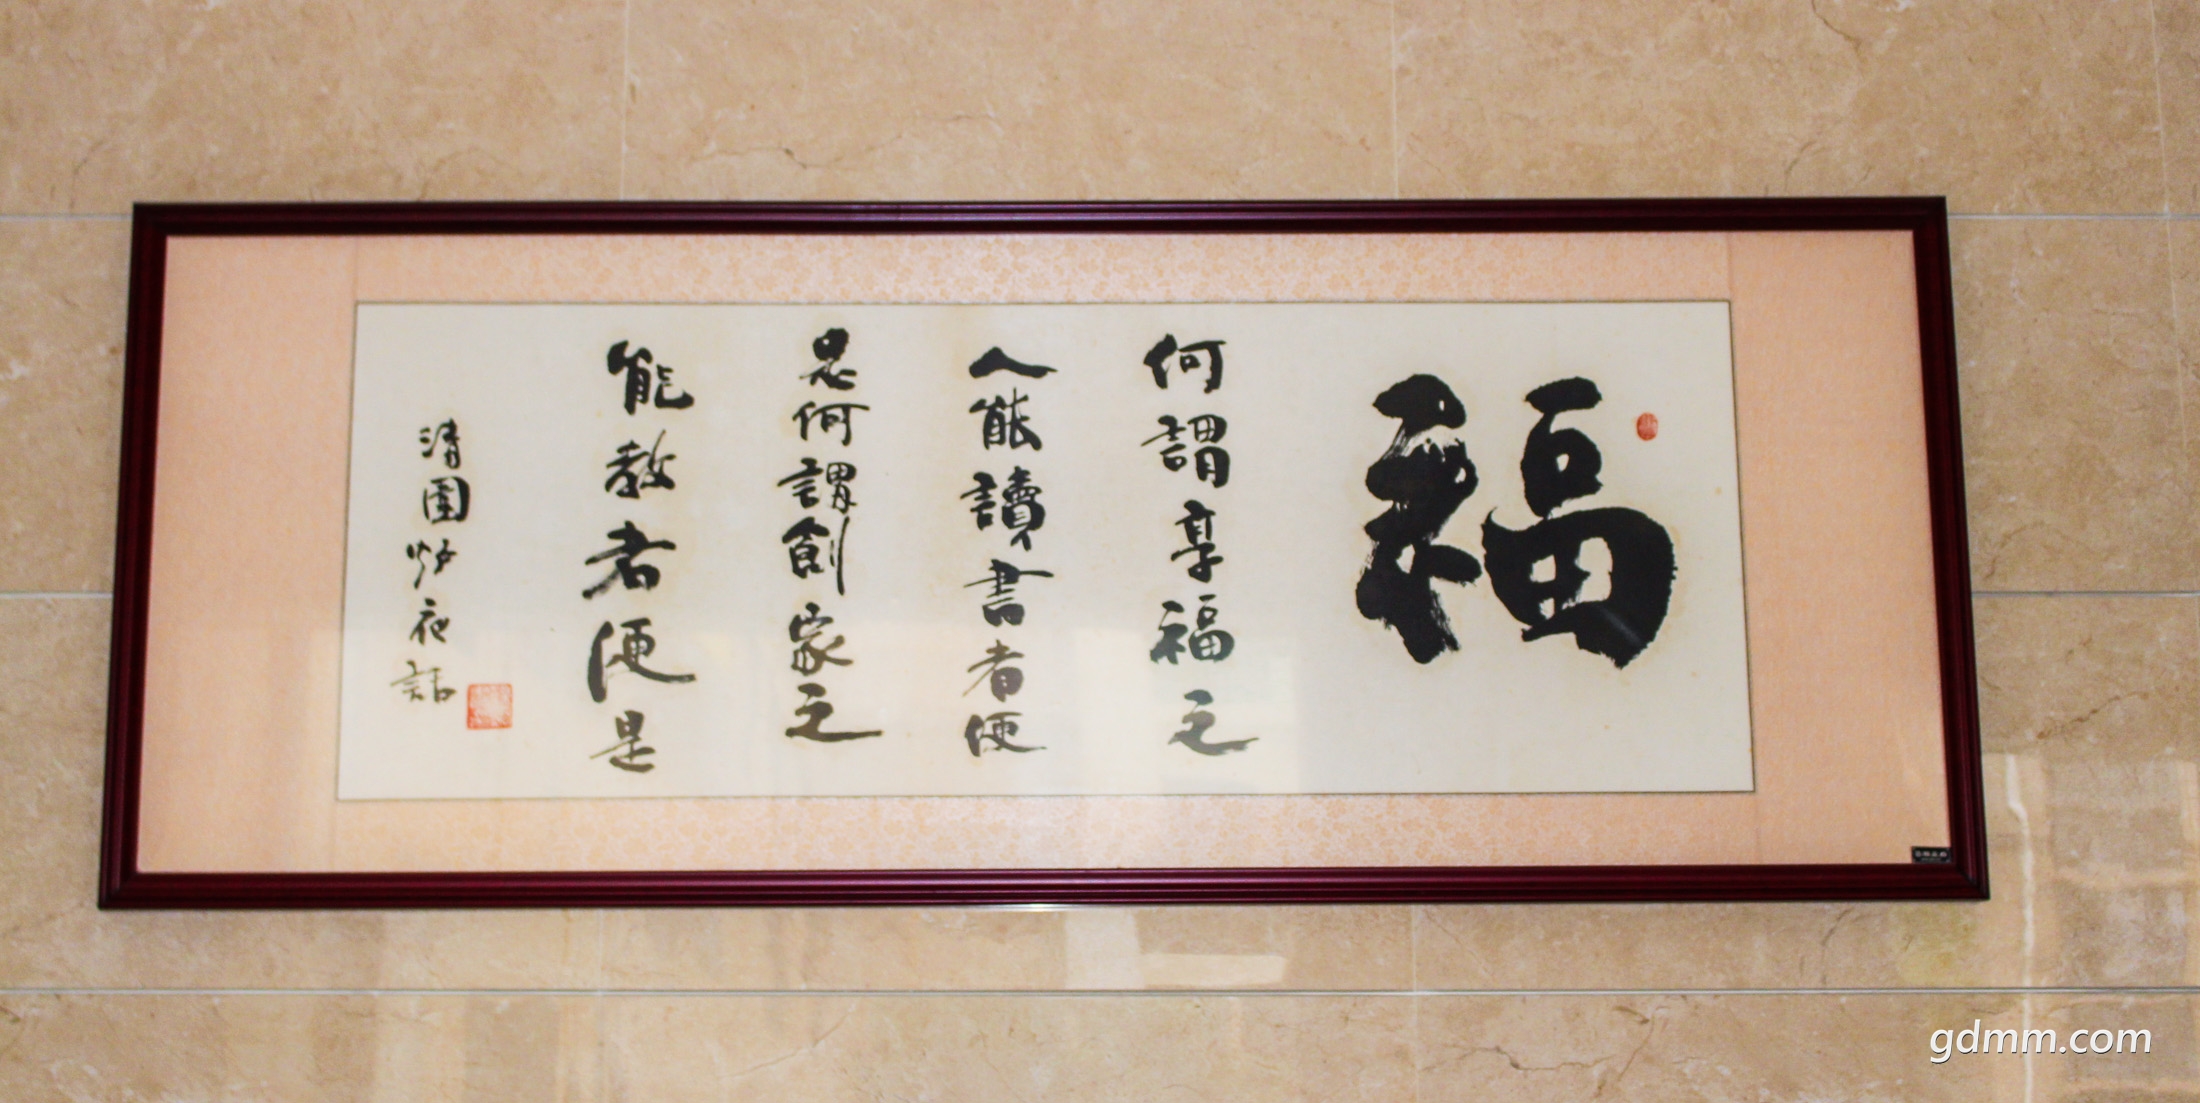 福
何謂享福之
人能讀書者便
是何謂創家之
能教者便是
清園炉夜話
gdmm.com